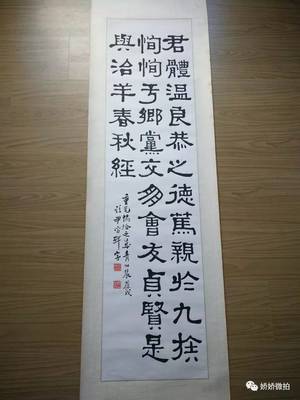 君體温良恭之德篤親於九族
恂恂于鄉黨交朋會友貞賢是
與治羊春秋經
娇娇微拍